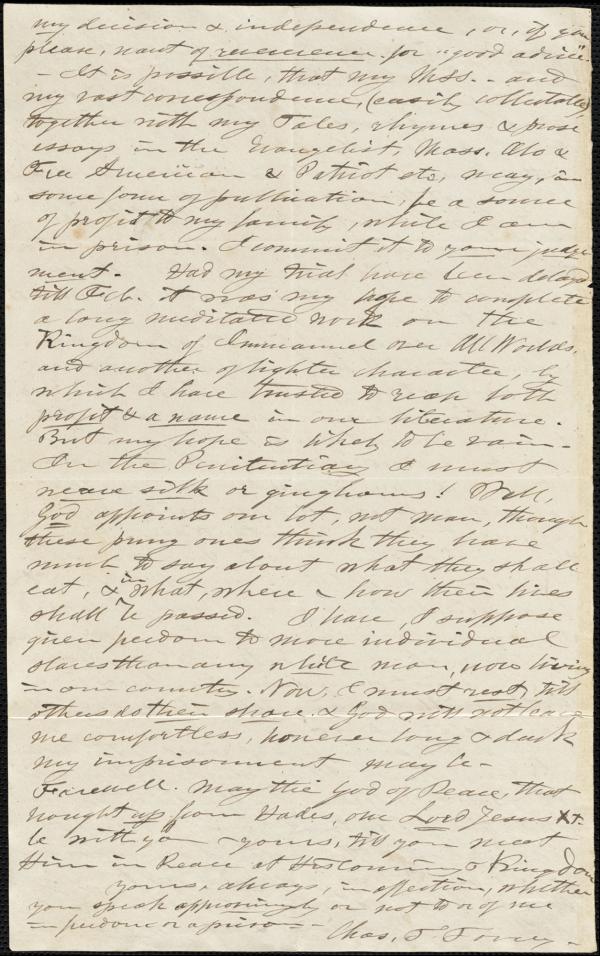 my decision & independence, or, if you
please, want of reverence for "good advice".
- It is possible, that my MSS. - and
my vast correspondence, (easily collectable),
together with my Tales, rhymes & prose
essays in the Evangelist, Mass. Abo &
Free American & Patriot etc, may, in
some form of publication, be a source
of profit to my family, while I am
in prison. I commit it to your judge
ment. Had my trial have been delayed
till Feb. it was my hope to complete
a long meditated work on the
Kingdom of Immanuel over All Worlds,
and another of lighter character, by
which I have trusted to reap both
profit & a name in our literature.
But my hope is likely to be vain -
In the Penitentiary I must
weave silk or ginghams! Well,
God appoints our lot, not man, though
these young ones think they have
much to say about what they shall
eat, & in what, where & how their lives
shall be passed. I have, I suppose
given freedom to more individual
slaves than any white man, now living
in our country. Now, I must rest, till
others do their share. & God will not leave
me comfortless, however long & dark
my imprisonment may be -
Farewell. May the God of Peace, that
brought up from Hades, our Lord Jesus Xt.
be with you & yours, till you meet
Him in Peace at His coming & Kingdom
yours, always, in affection, whether
you speak approvingly or not to or of me
in freedom or a prison -
Chas. T. Torrey -